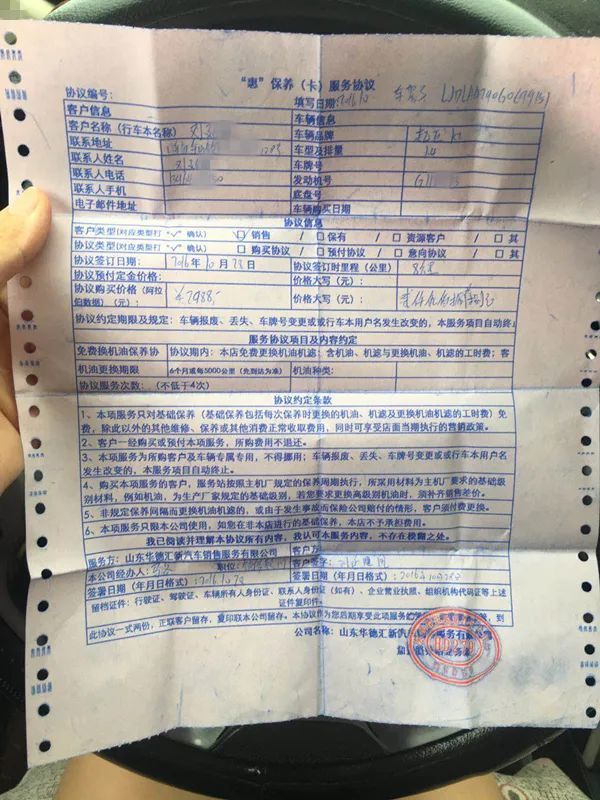 “惠”保养（卡）服务协议
协议编号： 填写日期：2016.10 车架号
客户信息 车辆信息
客户名称（行车本名称） 刘 车辆品牌
联系地址 车型及排量 1.4
联系人姓名 车牌号
联系人电话 发动机号
联系人手机 底盘号
电子邮件地址 车辆购买日期
协议信息
客户类型(对应类型打“√”确认) ☑销售 / □ 保有 / □ 资源客户 / □ 其
协议类型(对应类型打“√”确认) □ 购买协议 / □ 预付协议 / □ 意向协议 / □ 其
协议签订日期： 2016年10月28日 协议签订时里程（公里）
协议预付定金价格： 价格大写（元）：
协议购买价格（阿拉伯数据）（元）： ￥2988- 价格大写（元）： 贰仟玖佰捌拾捌元
协议约定期限及规定：车辆报废、丢失、车牌号变更或或行车本用户名发生改变的，本服务项目自动终止
服务协议项目及内容约定
免费换机油保养协 协议期内：本店免费更换机油机滤：含机油、机滤与更换机油、机滤的工时费；客
机油更换期限 6个月或每5000公里（先到达为准） 机油种类：
协议服务次数：（不低于4次）
协议约定条款
1、本项服务只对基础保养（基础保养包括每次保养时更换的机油、机滤及更换机油机滤的工时费）免
费，除此以外的其他维修、保养或其他消费正常收取费用，同时可享受店面当期执行的营销政策。
2、客户一经购买或预付本项服务，所购费用不退还。
3、本项服务为所购客户及车辆专属专用，不得挪用；车辆报废、丢失、车牌号变更或或行车本用户名
发生改变的，本服务项目自动终止。
4、购买本项服务的客户，服务站按照主机厂规定的保养周期执行，所采用材料为主机厂要求的基础级
别材料，例如机油，为生产厂家规定的基础级别，若您要求更换高级别机油时，须补齐销售差价。
5、非规定保养间隔而更换机油机滤的，或由于发生事故而保险公司赔付的情形，客户须付费更换。
6、本项服务只限本公司使用，如您在非本店进行的基础保养，本店不予承担费用。
我已阅读并理解本协议所有内容，我认可本服务内容，不存在模糊之处。
服务方：山东华德汇新汽车销售服务有限公司 客户方
本公司经办人： 职位： 客户签字：
签署日期（年月日格式）：2016.10.28 签署日期（年月日格式）：2016年10月28日
留档证件：行驶证、驾驶证、车辆所有人身份证、联系人身份证（如有）、企业营业执照、组织机构代码证等上述
证件复印件。
此协议一式两份，正联客户留存，复印联本公司留存。本协议作为您后期享受此项服务的 ，到
公司名称：山东华德汇新汽 服务有限